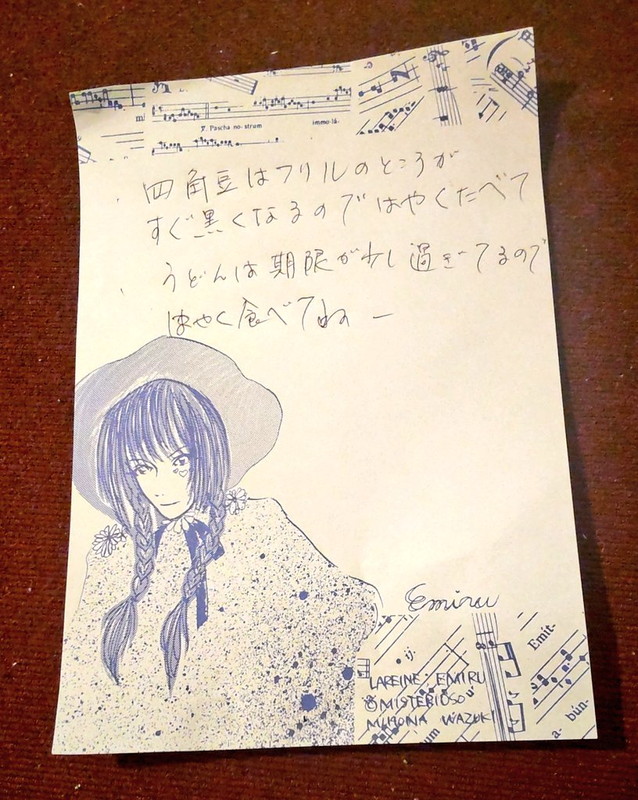 m
℣. Pascha no- strum
immo-lá-
・四角豆はフリルのところが
すぐ黒くなるのではやくたべて
・うどんは期限が少し過ぎてるので
はやく食べてねー
Emiru
ij.
Emit-
LAREINE・EMIRU
MISTERIOSO
MIHONA WAZUKI
um
a- bún-